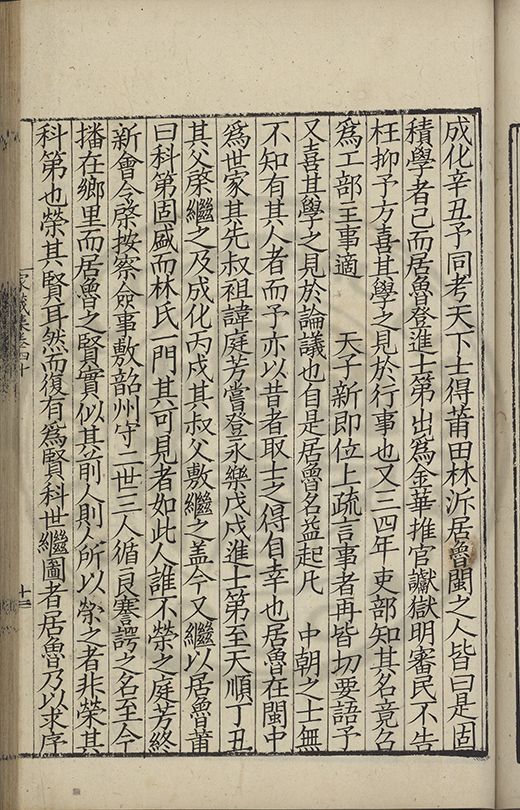 成化辛丑予同考天下士得莆田林沂居魯閩之人皆曰是固
積學者已而居魯登進士第出爲金華推官讞獄明審民不告
枉抑予方喜其學之見於行事也又三四年 吏部知其名竟召
爲工部主事適 天子新即位上疏言事者再皆切要語予
又喜其學之見於論議也自是居魯名益起凡 中朝之士無
不知有其人者而予亦以昔者取士之得自幸也居魯在閩中
爲世家其先叔祖諱庭芳嘗登永樂戊戌進士第至天順丁丑
其父棨繼之及成化丙戌其叔父敷繼之盖今又繼以居魯莆
曰科第固盛而林氏一門其可見者如此人誰不榮之庭芳終
新會令棨按察僉事敷韶州守二世三人循良謇諤之名至今
播在鄉里而居魯之賢實似其前人則人所以榮之者非榮其
科第也榮其賢耳然而復有爲賢科世繼圖者居魯乃以求序
家藏集卷四十
十三